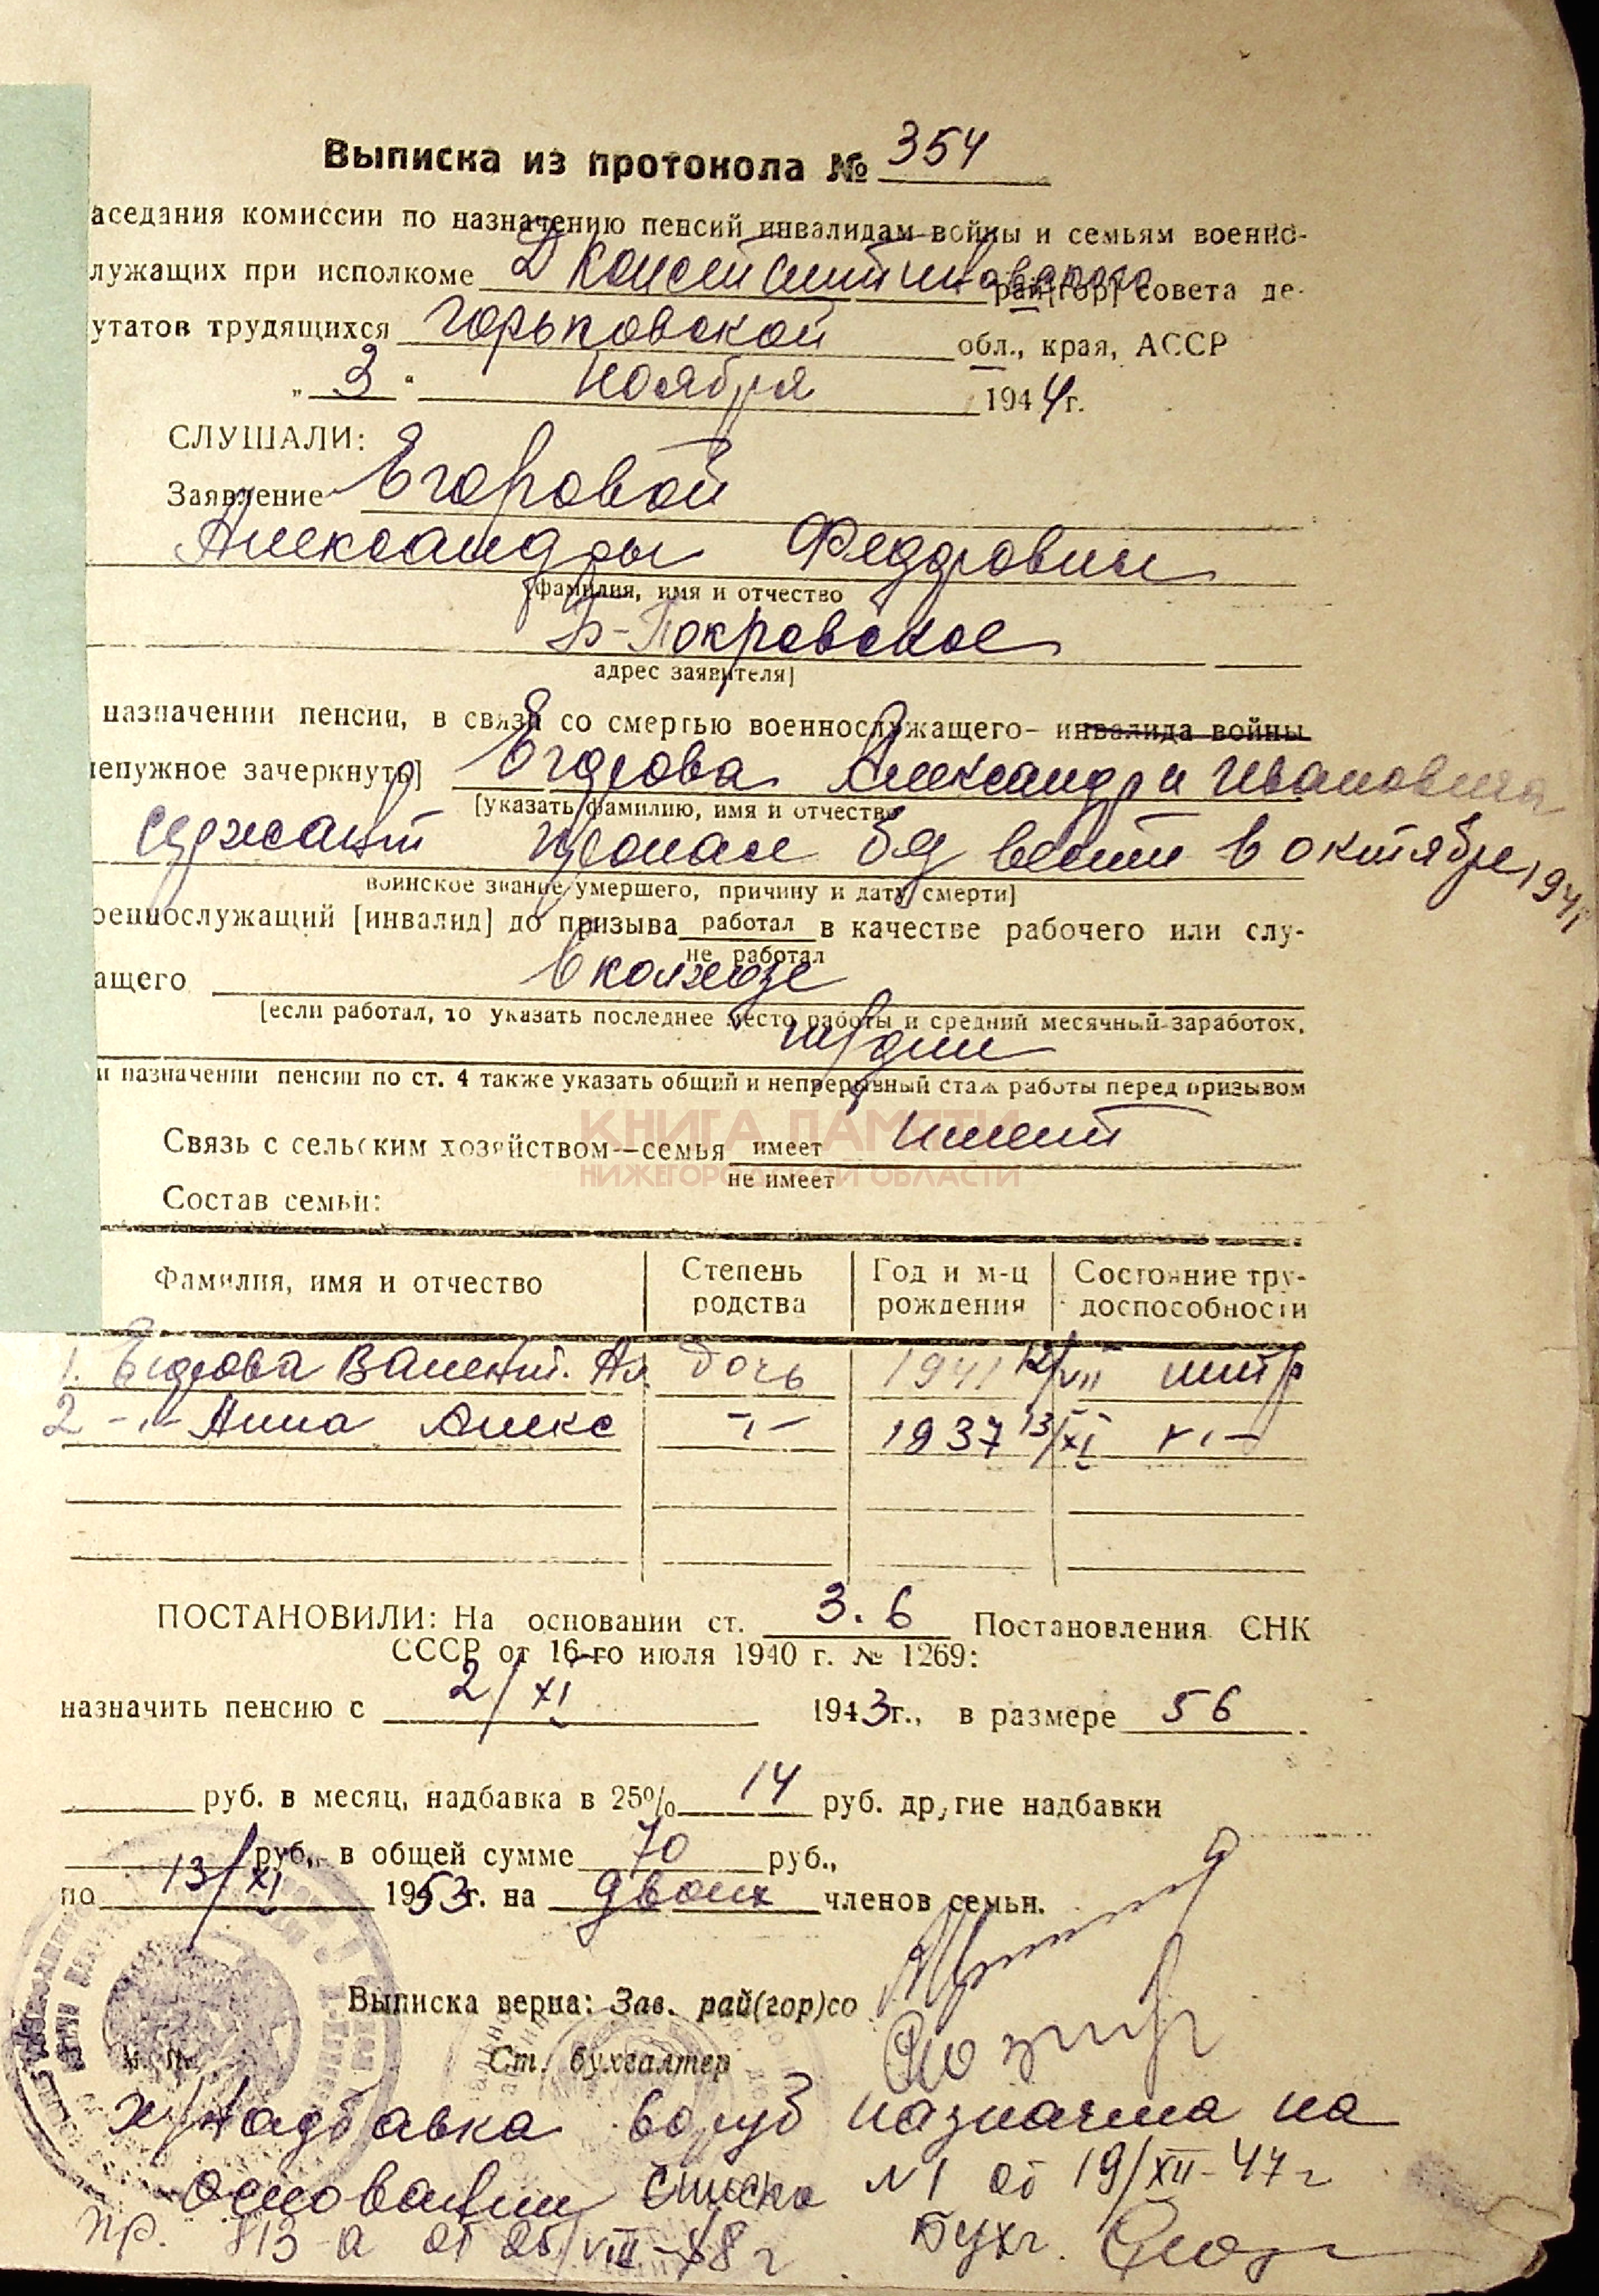 Выписка из протокола № 354
аседания комиссии по назначению пенсий инвалидам войны и семьям военно-
лужащих при исполкоме Д Константиновского рай[гор] совета де-
утатов трудящихся Горьковской обл., края, АССР
„ 3 " ноября 1944 г.
СЛУШАЛИ:
Заявление Егоровой
Александры Федоровны
фамилия, имя и отчество
Б-Покровское
адрес заявителя]
назначении пенсии, в связи со смертью военнослужащего- инвалида войны
ненужное зачеркнуть] Егорова Александра Ивановича
[указать фамилию, имя и отчество
сержант пропал без вести в октябре 194
воинское звание умершего, причину и дату смерти]
оеннослужащий [инвалид] до призыва работал в качестве рабочего или слу-
не работал
ащего в колхозе
[если работал, то указать последнее место работы и средний месячный заработок,
и назначении пенсии по ст. 4 также указать общий и непрерывный стаж работы перед призывом
КНИГА ПАМЯТИ
НИЖЕГОРОДСКОЙ ОБЛАСТИ
Связь с сельским хозяйством—семья имеет имеет
не имеет
Состав семьи:
Фамилия, имя и отчество Степень родства Год и м-ц рождения Состояние тру-доспособности
1. Егорова Валент. Ал. дочь 1941 12/VII нетр
2 -"- Анна Алекс -"- 1937 13/XI -"-
ПОСТАНОВИЛИ: На основании ст. 3.6 Постановления СНК
СССР от 16-го июля 1940 г. № 1269:
назначить пенсию с 2/XI 1943 г., в размере 56
руб. в месяц, надбавка в 25% 14 руб. другие надбавки
руб., в общей сумме 70 руб.,
по 13/XI 1953 г. на двоих членов семьи.
Выписка верна: Зав. рай(гор)со
Ст. бухгалтер
надбавка 60 руб назначена на
основании списка №1 от 19/XII-47 г
Пр. 813-а от 25/VIII-48 г Бухг.